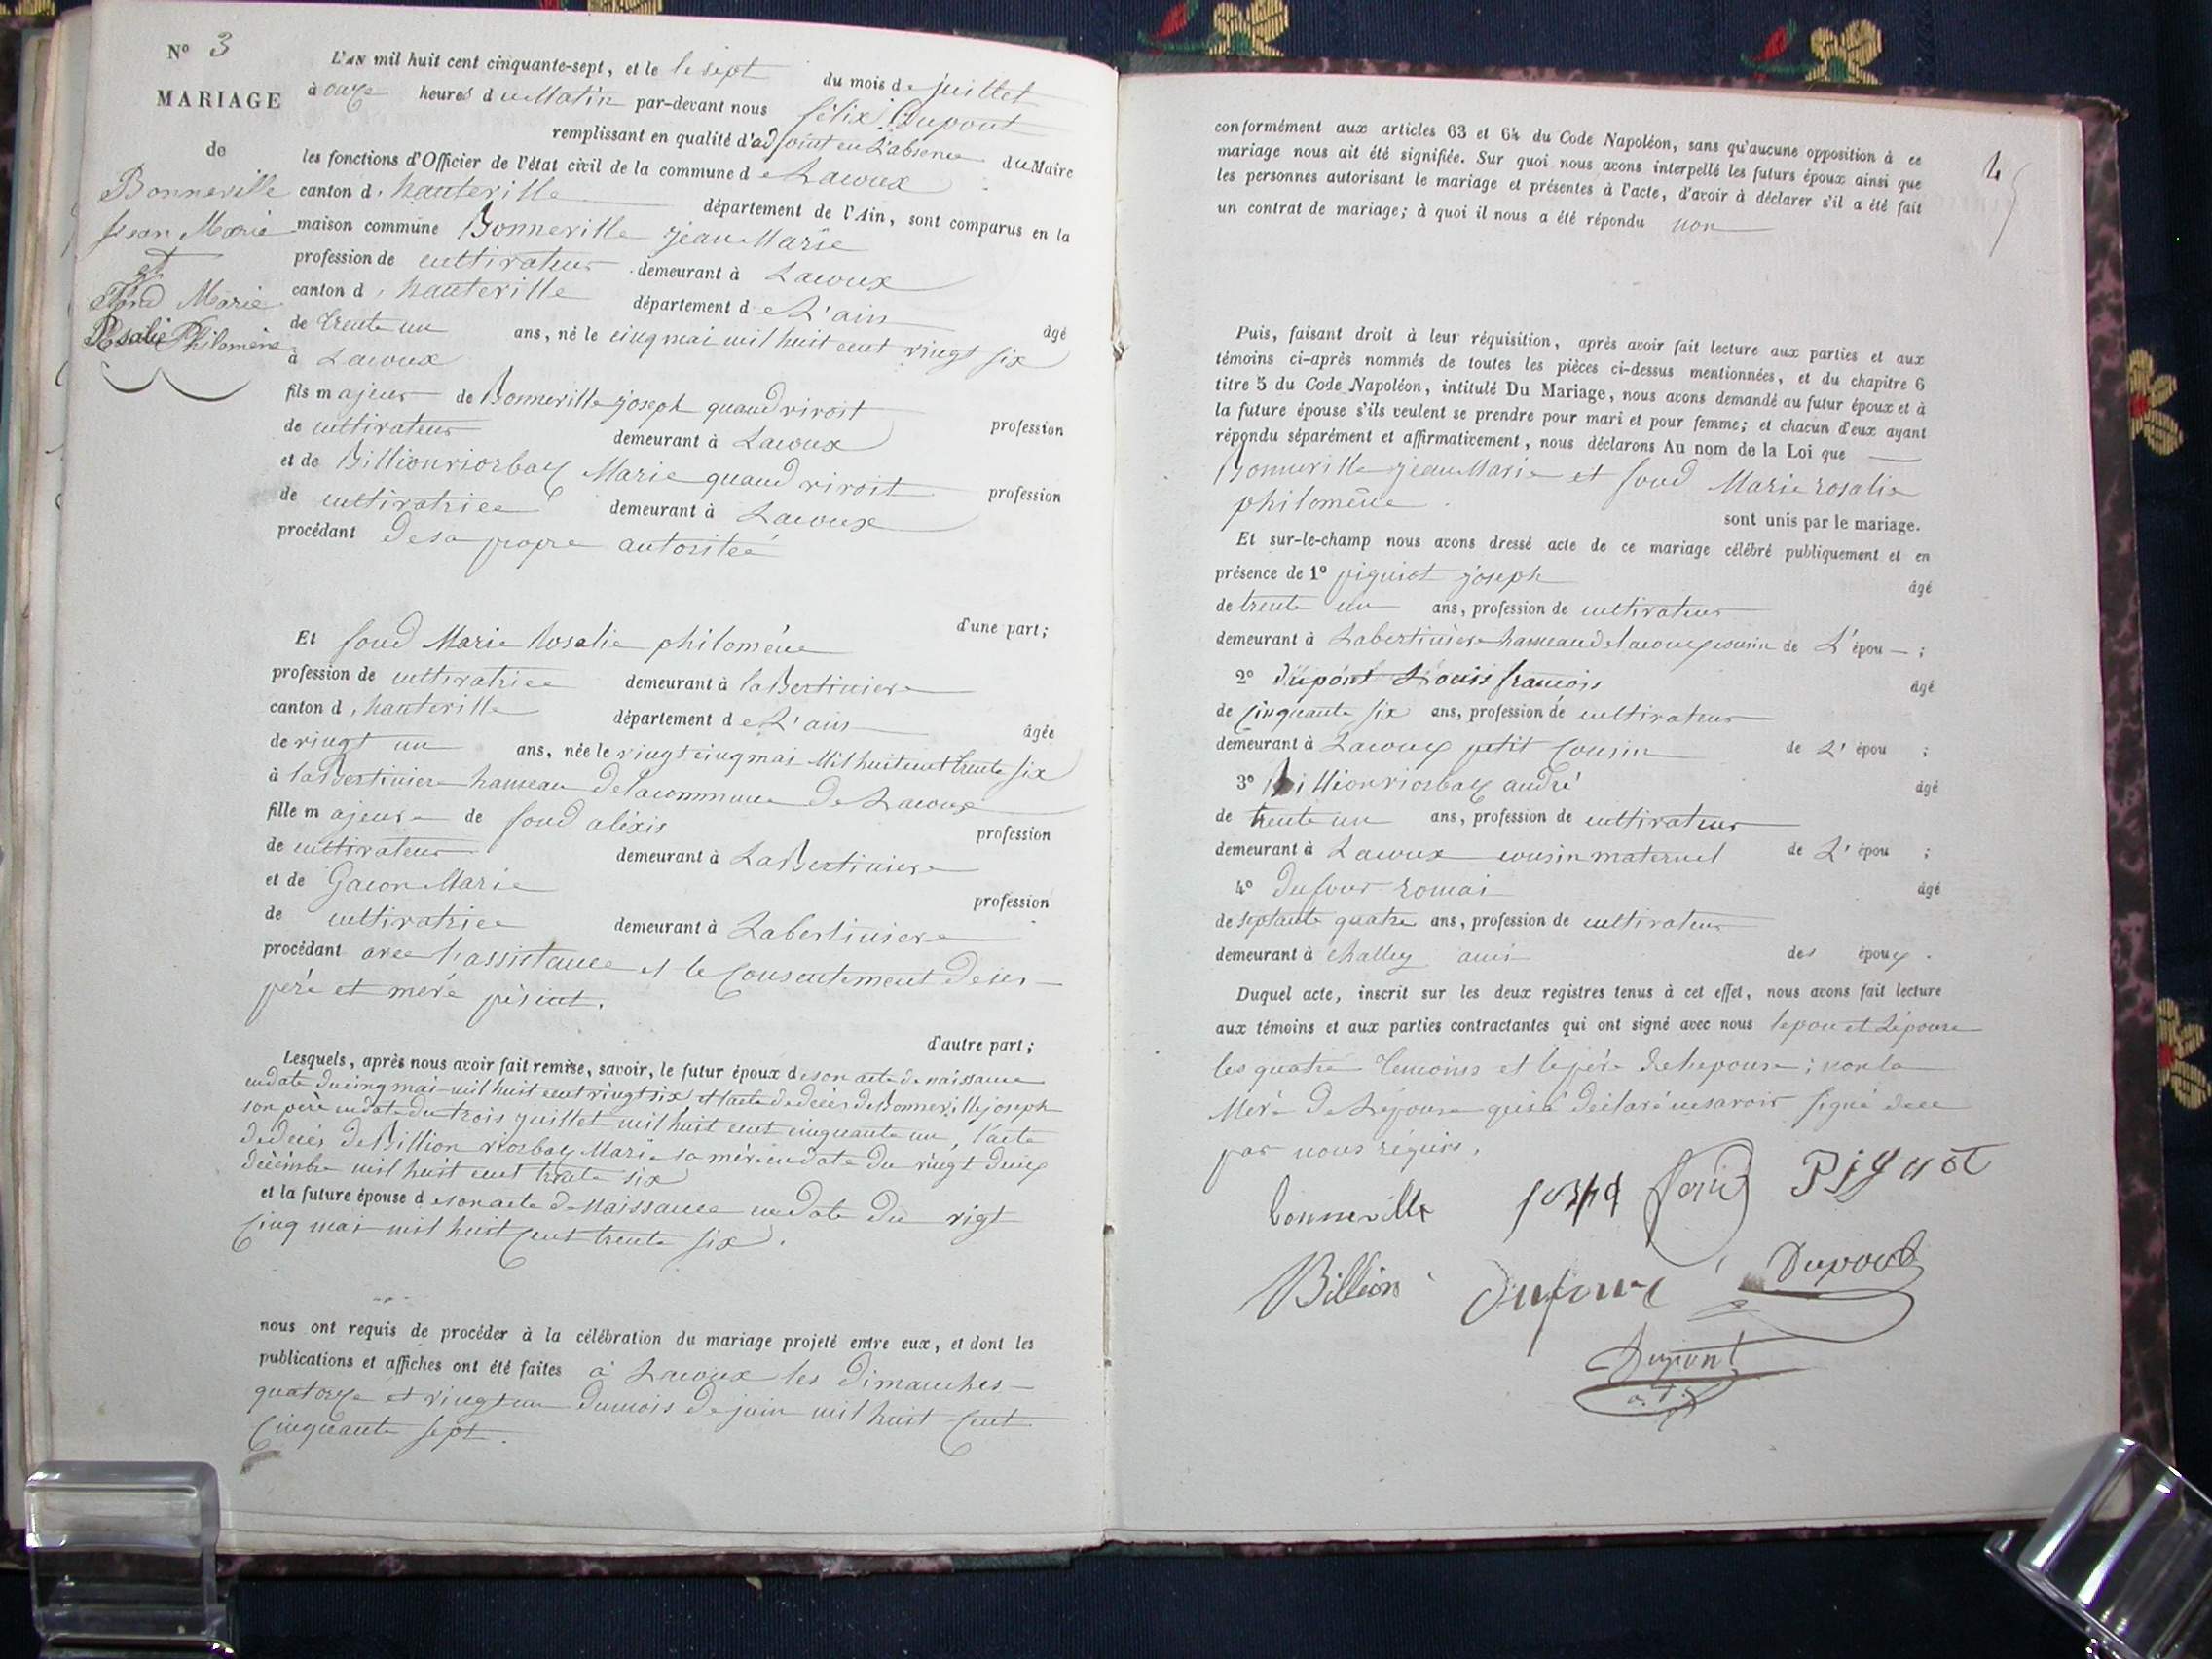 N° 3
MARIAGE
de
Bonneville
Jean Marie
et
Fond Marie
Rosalie Philomène
L'AN mil huit cent cinquante-sept, et le le sept du mois de juillet
à onze heures du Matin par-devant nous félix Dupont
remplissant en qualité d'adjoint en L'absence du Maire
les fonctions d'Officier de l'état civil de la commune de Lacoux
canton d, hauteville département de l'Ain, sont comparus en la
maison commune Bonneville jean Marie
profession de cultivateur demeurant à Lacoux
canton d, hauteville département de L'ain âgé
de trente un ans, né le cinq mai mil huit cent vingt six
à Lacoux
fils majeur de Bonneville joseph quand vivoit profession
de cultivateur demeurant à Lacoux
et de Billionriorbay Marie quand vivoit profession
de cultivatrice demeurant à Lacoux
procédant de sa propre autoriteé
d'une part;
Et fond Marie Rosalie philoméne
profession de cultivatrice demeurant à la Bertiniere
canton d, hauteville département de L'ain âgée
de vingt un ans, née le vingt cinq mai Mil huit cent trente six
à la Bertiniere hameau de la commune de Lacoux
fille majeure de fond aléxis profession
de cultivateur demeurant à La Bertiniere
et de Gacon Marie profession
de cultivatrice demeurant à Labertiniere
procédant avec l'assistance et le Consentement de ses
péré et meré présent.
d'autre part;
Lesquels, après nous avoir fait remise, savoir, le futur époux de son acte de naissance
en date du cinq mai mil huit cent vingt six et l'acte de décés de Bonneville joseph
son péré en date du trois juillet mil huit cent cinquante un, l'acte
de decés de Billion riorbay Marie sa mére en date du vingt deux
décémbre mil huit cent trente six
et la future épouse de son acte de Naissance en date du vigt
cinq mai mil huit Cent trente six.
nous ont requis de procéder à la célébration du mariage projeté entre eux, et dont les
publications et affiches ont été faites à Lacoux les Dimanches
quatorze et vingt un du mois de juin mil huit Cent
Cinquante sept.
4
conformément aux articles 63 et 64 du Code Napoléon, sans qu'aucune opposition à ce
mariage nous ait été signifiée. Sur quoi nous avons interpellé les futurs époux ainsi que
les personnes autorisant le mariage et présentes à l'acte, d'avoir à déclarer s'il a été fait
un contrat de mariage; à quoi il nous a été répondu non
Puis, faisant droit à leur réquisition, après avoir fait lecture aux parties et aux
témoins ci-après nommés de toutes les pièces ci-dessus mentionnées, et du chapitre 6
titre 5 du Code Napoléon, intitulé Du Mariage, nous avons demandé au futur époux et à
la future épouse s'ils veulent se prendre pour mari et pour femme; et chacun d'eux ayant
répondu séparément et affirmativement, nous déclarons Au nom de la Loi que
Bonneville jean Marie et fond Marie rosalie
philoméne sont unis par le mariage.
Et sur-le-champ nous avons dressé acte de ce mariage célébré publiquement et en
présence de 1° piguiot joseph âgé
de trente un ans, profession de cultivateur
demeurant à Labertiniere hameau de lacoux cousin de L'épou ;
2° dupont Louis francois âgé
de Cinquante six ans, profession de cultivateur
demeurant à Lacoux petit Cousin de L' épou ;
3° Billionriorbay andré âgé
de trente un ans, profession de cultivateur
demeurant à Lacoux cousin maternel de L' épou ;
4° dufour romai âgé
de septante quatre ans, profession de cultivateur
demeurant à challey amis des époux .
Duquel acte, inscrit sur les deux registres tenus à cet effet, nous avons fait lecture
aux témoins et aux parties contractantes qui ont signé avec nous lepou et Lépouse
les quatre temoins et le péré de lepouse ; non la
Meré de Lépouse qui a déclaré ne savoir signé de ce
par nous réquis.
bonneville fond Pignot
Billion Dufour Dupont
Dupont